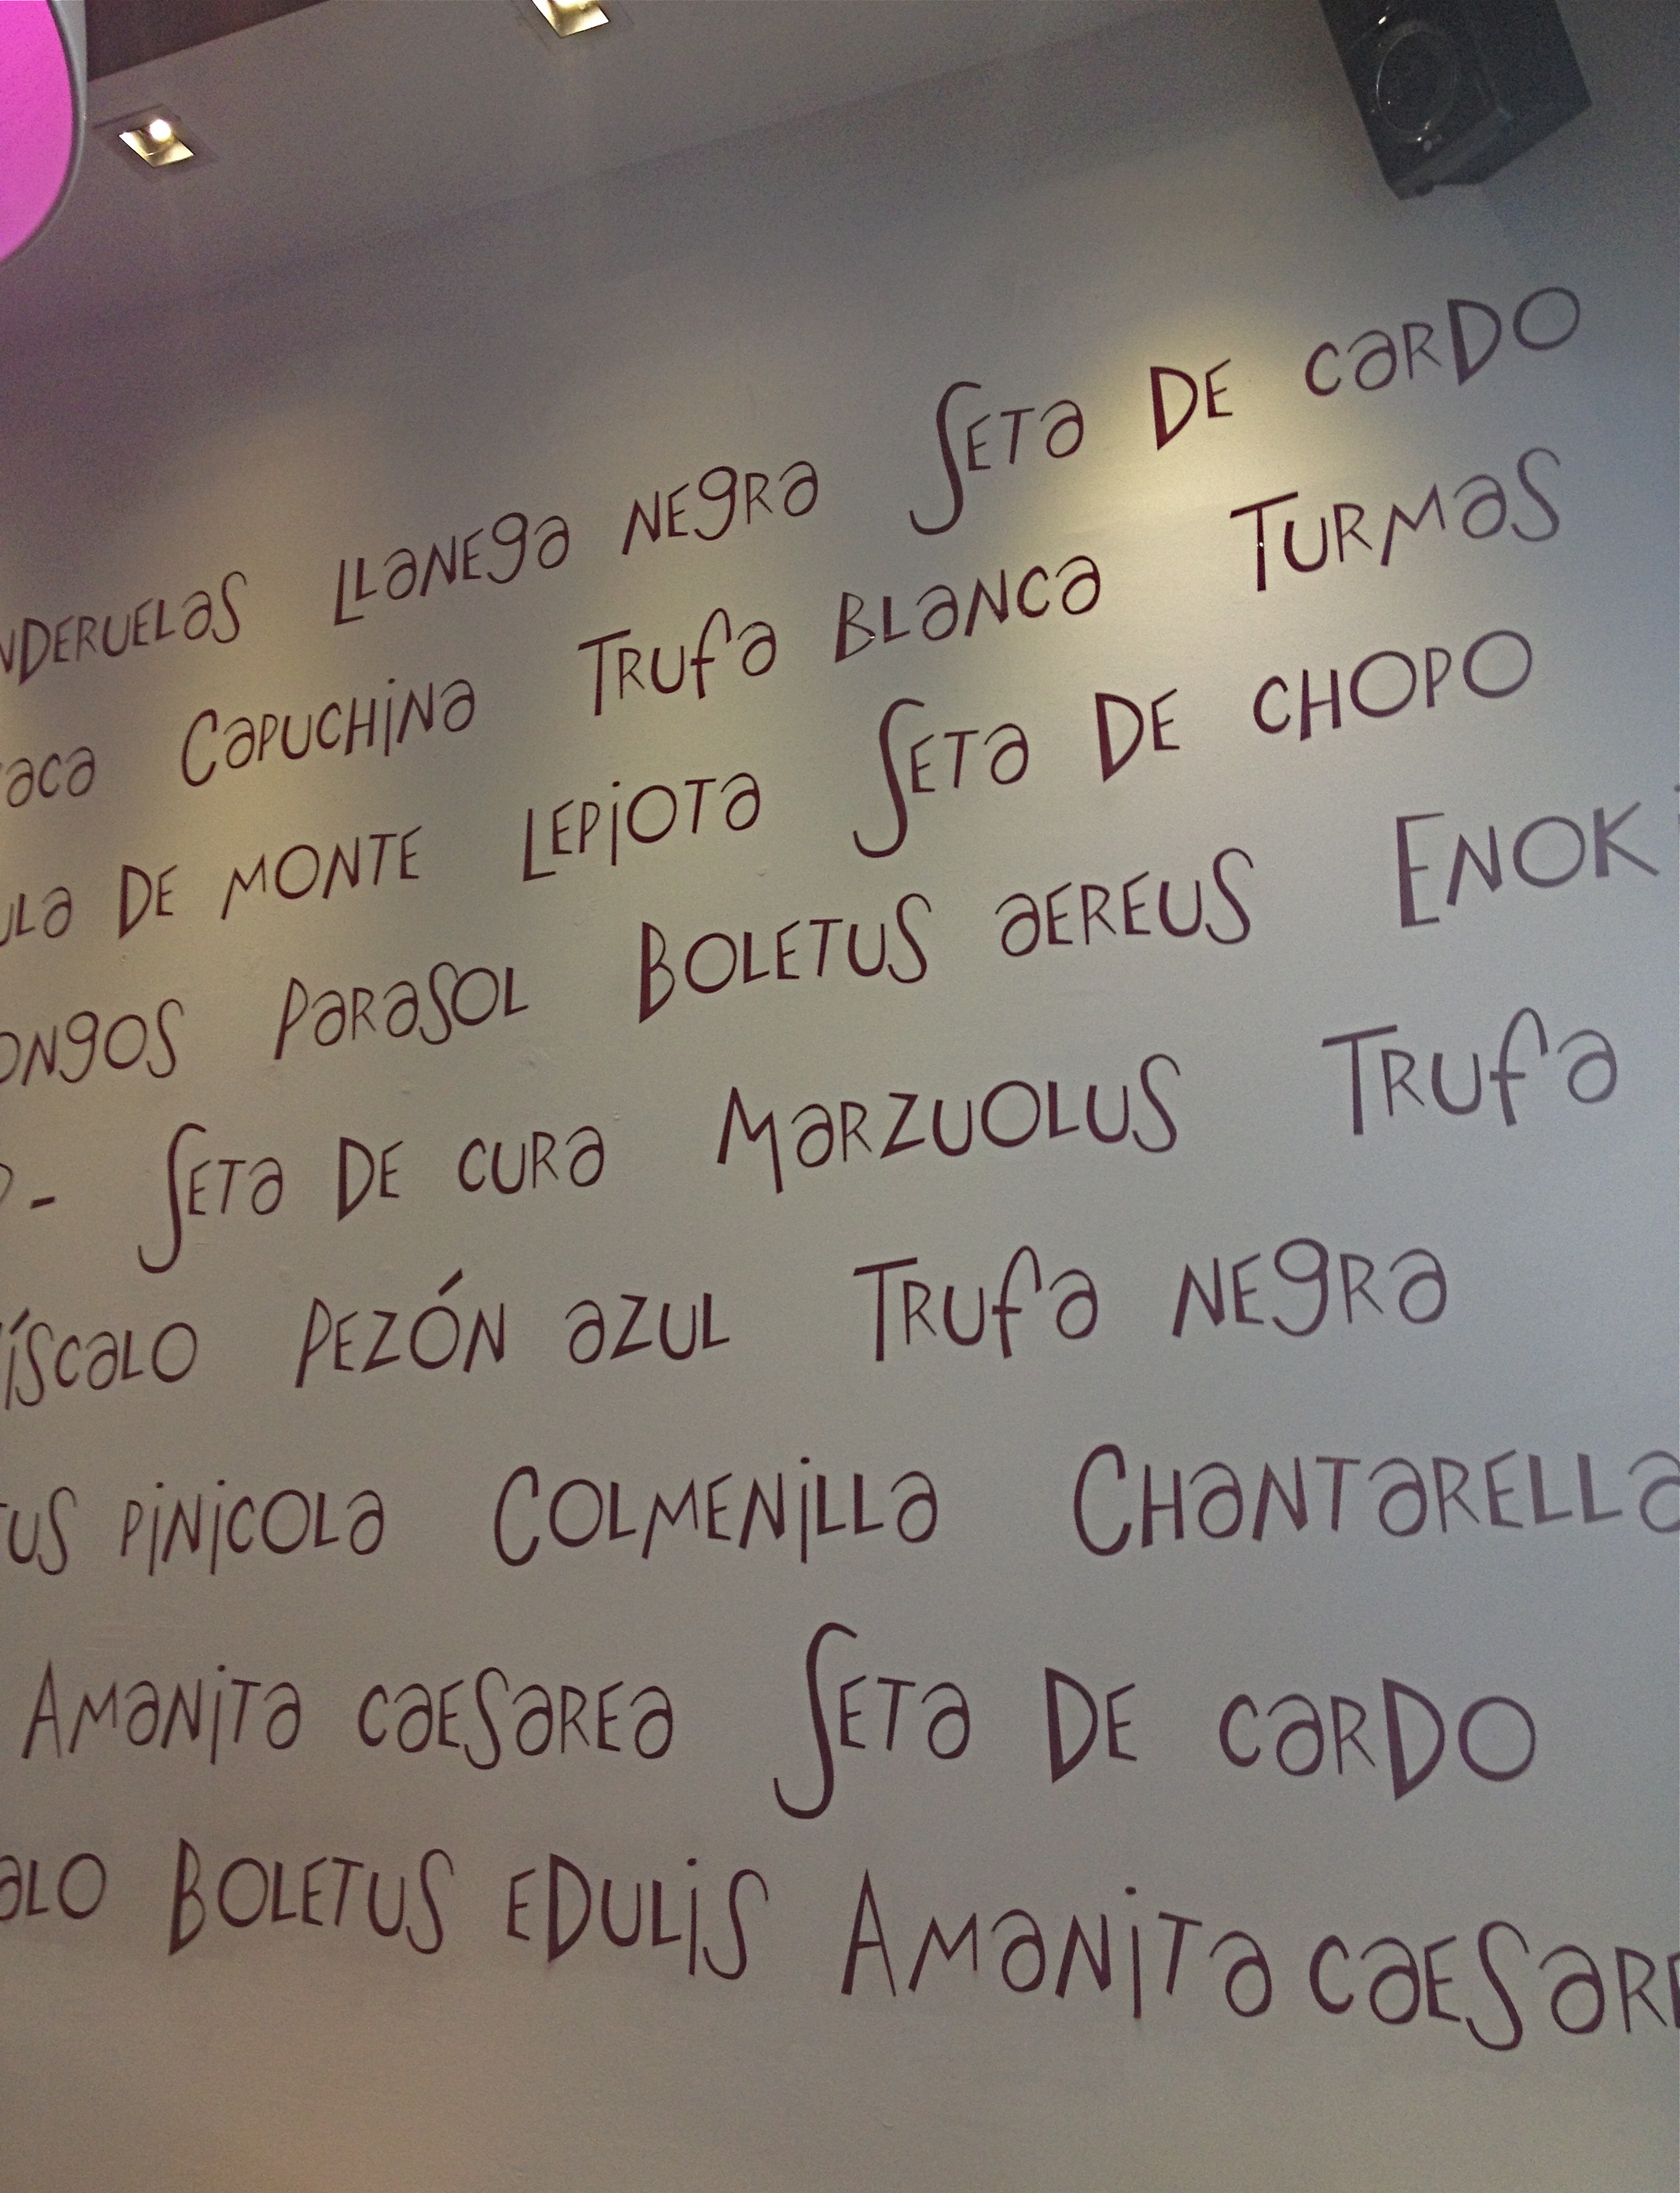 Llanega negra Seta de cardo
Capuchina Trufa Blanca Turmas
de monte Lepiota Seta de chopo
Parasol Boletus aereus Enoki
- Seta de cura Marzuolus Trufa
Pezón azul Trufa negra
pinicola Colmenilla Chantarella
Amanita caesarea Seta de cardo
Boletus edulis Amanita